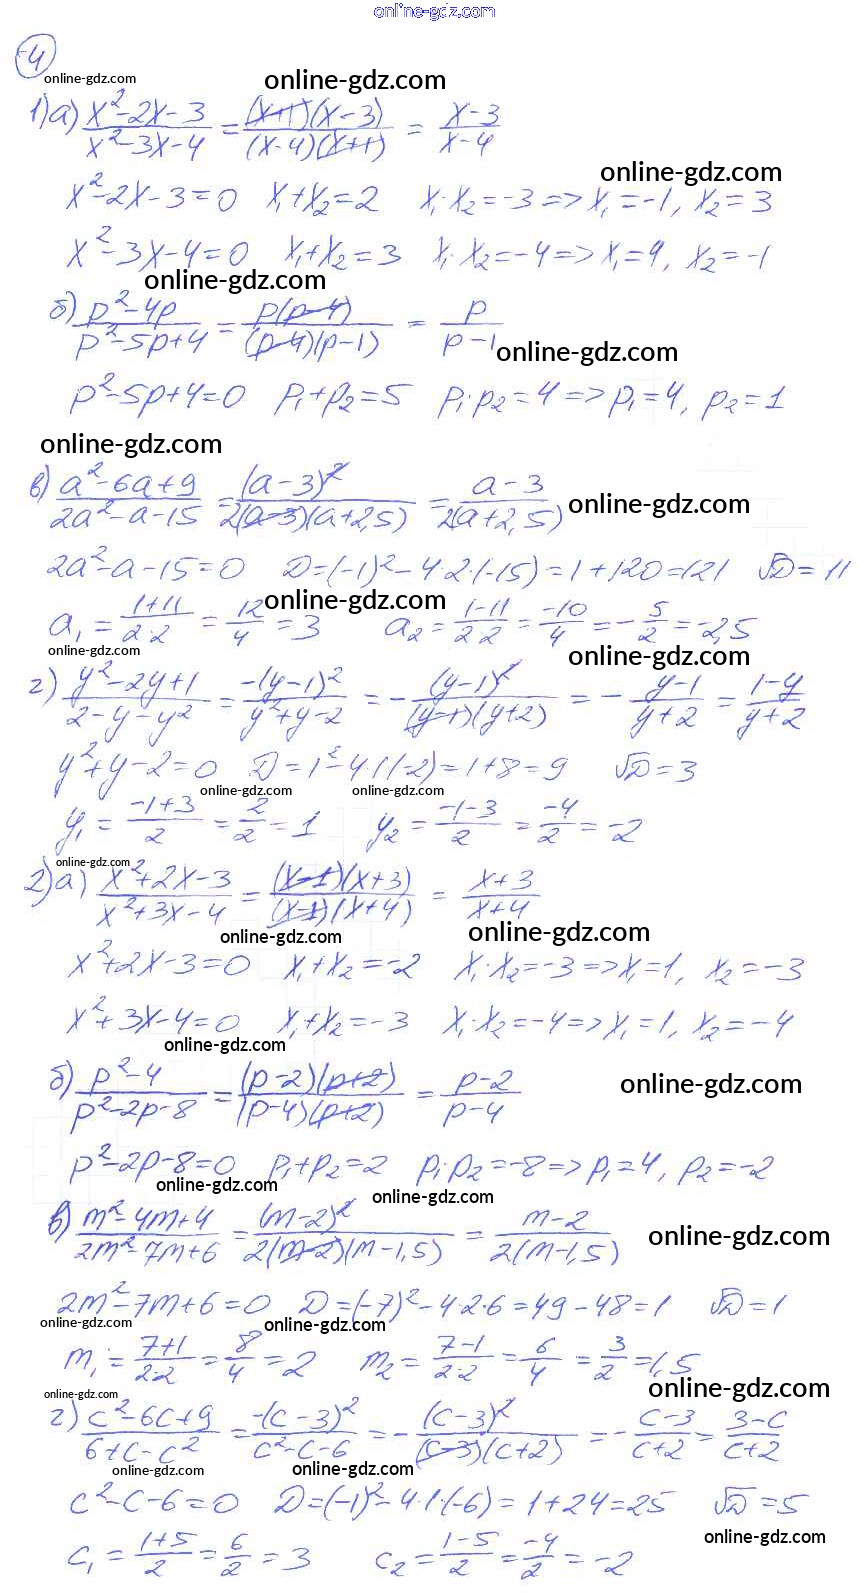 online-gdz.com
4
online-gdz.com online-gdz.com
1) а) (x²-2x-3)/(x²-3x-4) = ((x+1)(x-3))/((x-4)(x+1)) = (x-3)/(x-4)
online-gdz.com
x²-2x-3=0 x₁+x₂=2 x₁·x₂=-3=>x₁=-1, x₂=3
x²-3x-4=0 x₁+x₂=3 x₁·x₂=-4=>x₁=4, x₂=-1
online-gdz.com
б) (p²-4p)/(p²-5p+4) = (p(p-4))/((p-4)(p-1)) = p/(p-1)
online-gdz.com
p²-5p+4=0 p₁+p₂=5 p₁·p₂=4=>p₁=4, p₂=1
online-gdz.com
в) (a²-6a+9)/(2a²-a-15) = (a-3)²/(2(a-3)(a+2,5)) = (a-3)/(2(a+2,5))
online-gdz.com
2a²-a-15=0 D=(-1)²-4·2·(-15)=1+120=121 √D=11
online-gdz.com
a₁=(1+11)/(2·2)=12/4=3 a₂=(1-11)/(2·2)=-10/4=-5/2=-2,5
online-gdz.com online-gdz.com
г) (y²-2y+1)/(2-y-y²) = -(y-1)²/(y²+y-2) = -(y-1)²/((y-1)(y+2)) = -(y-1)/(y+2) = (1-y)/(y+2)
y²+y-2=0 D=1²-4·1·(-2)=1+8=9 √D=3
online-gdz.com online-gdz.com
y₁=(-1+3)/2=2/2=1 y₂=(-1-3)/2=-4/2=-2
online-gdz.com
2) а) (x²+2x-3)/(x²+3x-4) = ((x-1)(x+3))/((x-1)(x+4)) = (x+3)/(x+4)
online-gdz.com online-gdz.com
x²+2x-3=0 x₁+x₂=-2 x₁·x₂=-3=>x₁=1, x₂=-3
x²+3x-4=0 x₁+x₂=-3 x₁·x₂=-4=>x₁=1, x₂=-4
online-gdz.com
б) (p²-4)/(p²-2p-8) = ((p-2)(p+2))/((p-4)(p+2)) = (p-2)/(p-4)
online-gdz.com
p²-2p-8=0 p₁+p₂=2 p₁·p₂=-8=>p₁=4, p₂=-2
online-gdz.com online-gdz.com
в) (m²-4m+4)/(2m²-7m+6) = (m-2)²/(2(m-2)(m-1,5)) = (m-2)/(2(m-1,5))
online-gdz.com
2m²-7m+6=0 D=(-7)²-4·2·6=49-48=1 √D=1
online-gdz.com online-gdz.com
m₁=(7+1)/(2·2)=8/4=2 m₂=(7-1)/(2·2)=6/4=3/2=1,5
online-gdz.com online-gdz.com
г) (c²-6c+9)/(6+c-c²) = -(c-3)²/(c²-c-6) = -(c-3)²/((c-3)(c+2)) = -(c-3)/(c+2) = (3-c)/(c+2)
online-gdz.com online-gdz.com
c²-c-6=0 D=(-1)²-4·1·(-6)=1+24=25 √D=5
online-gdz.com
c₁=(1+5)/2=6/2=3 c₂=(1-5)/2=-4/2=-2